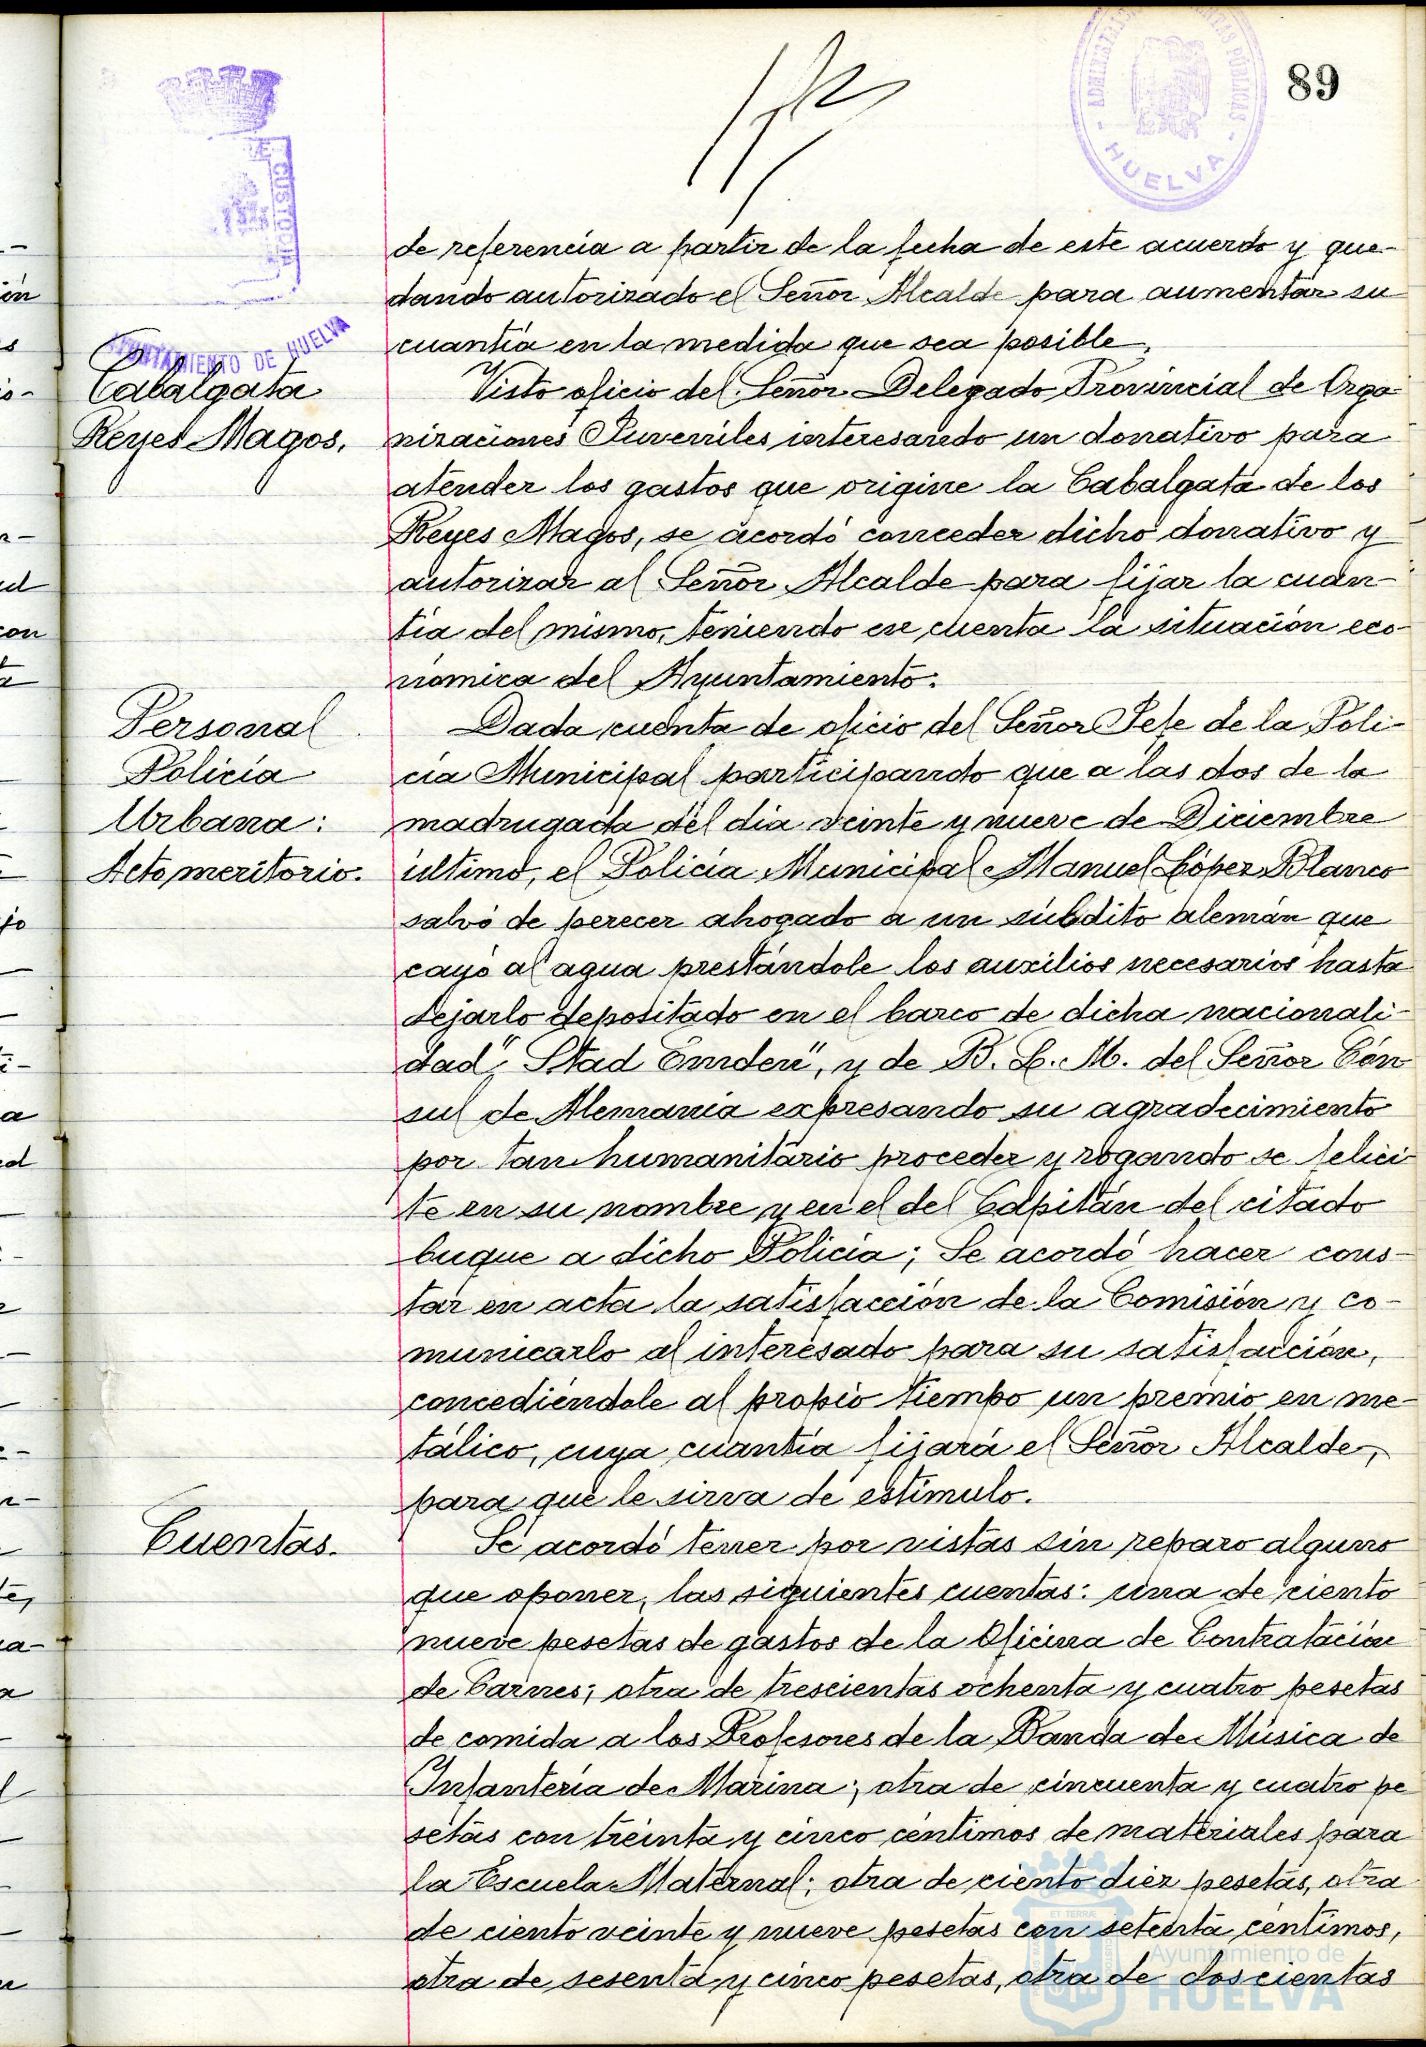 89
ADMINISTRACIÓN
PÚBLICAS
- HUELVA -
CUSTODIA
AYUNTAMIENTO DE HUELVA
de referencia a partir de la fecha de este acuerdo y que-
dando autorizado el Señor Alcalde para aumentar su
cuantía en la medida que sea posible.
Cabalgata
Reyes Magos.
Visto oficio del Señor Delegado Provincial de Orga
nizaciones Juveniles interesando un donativo para
atender los gastos que origine la Cabalgata de los
Reyes Magos, se acordó conceder dicho donativo y
autorizar al Señor Alcalde para fijar la cuan-
tía del mismo, teniendo en cuenta la situación eco-
nómica del Ayuntamiento.
Personal
Policía
Urbana:
Acto meritorio.
Dada cuenta de oficio del Señor Jefe de la Poli-
cía Municipal participando que a las dos de la
madrugada del día veinte y nueve de Diciembre
último, el Policía Municipal Manuel López Blanco
salvó de perecer ahogado a un súbdito alemán que
cayó al agua prestándole los auxilios necesarios hasta
dejarlo depositado en el barco de dicha nacionali-
dad "Stad Emden", y de B. L. M. del Señor Cón
sul de Alemania expresando su agradecimiento
por tan humanitario proceder y rogando se felici-
te en su nombre y en el del Capitán del citado
buque a dicho Policía; Se acordó hacer cons-
tar en acta la satisfacción de la Comisión y co-
municarlo al interesado para su satisfacción,
concediéndole al propio tiempo un premio en me-
tálico, cuya cuantía fijará el Señor Alcalde,
para que le sirva de estímulo.
Cuentas.
Se acordó tener por vistas sin reparo alguno
que oponer, las siguientes cuentas: una de ciento
nueve pesetas de gastos de la Oficina de Contratación
de Carnes; otra de trescientas ochenta y cuatro pesetas
de comida a los Profesores de la Banda de Música de
Infantería de Marina; otra de cincuenta y cuatro pe
setas con treinta y cinco céntimos de materiales para
la Escuela Maternal; otra de ciento diez pesetas, otra
de ciento veinte y nueve pesetas con setenta céntimos,
otra de sesenta y cinco pesetas, otra de doscientas
Ayuntamiento de
HUELVA